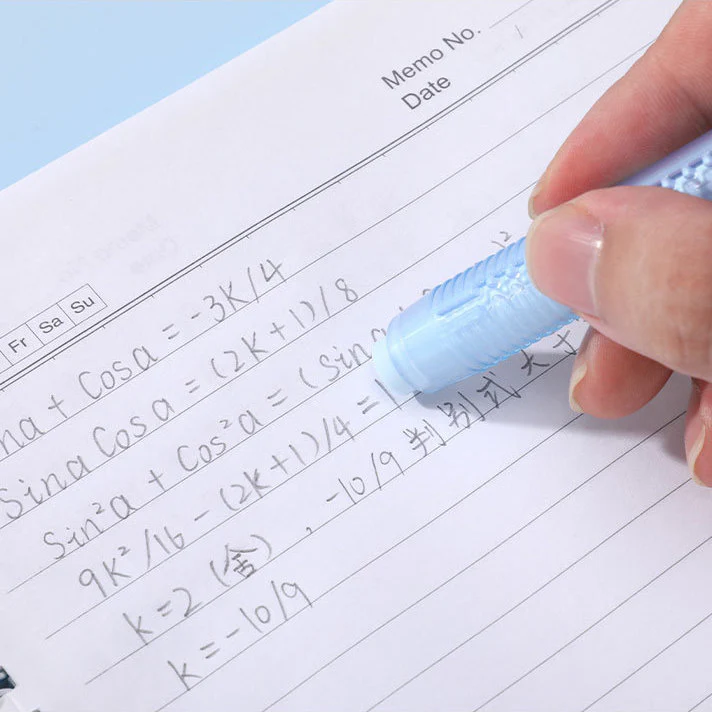 Memo No.
Date
Fr Sa Su
na + Cosa = -3K/4
Sina Cosa = (2K+1)/8
Sin²a + Cos²a = (Sina
9K²/16 - (2K+1)/4 = 1
k=2 (舍) , -10/9 判别式大于
k=-10/9